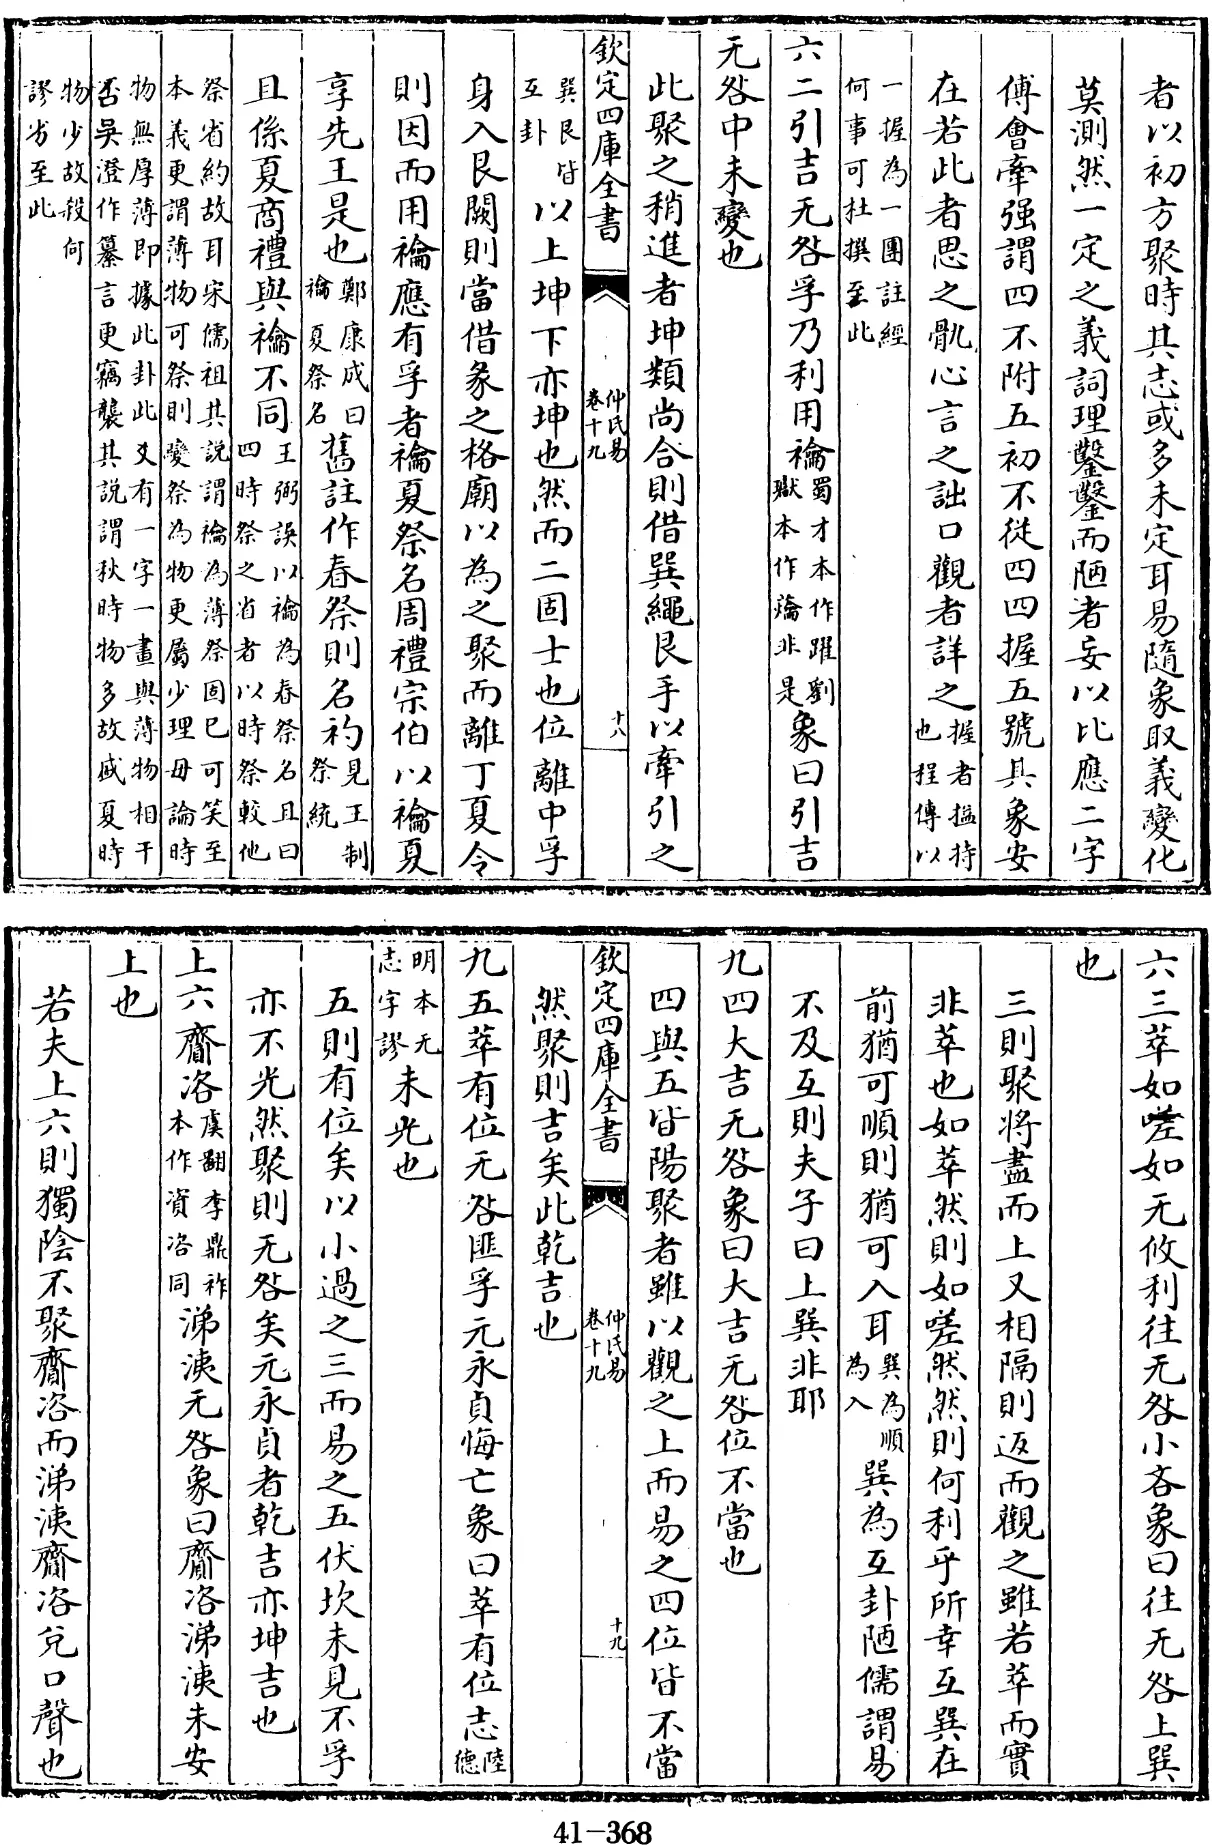 者以初方聚時其志或多未定耳易隨象取義變化
莫測然一定之義詞理鑿鑿而陋者妄以比應二字
傅會牽强謂四不附五初不從四四握五號具象安
在若此者思之骪心言之詘口觀者詳之握者搵持也程傳以
一握為一團註經何事可杜撰至此
六二引吉无咎孚乃利用禴蜀才本作躍劉瓛本作爚非是象曰引吉
无咎中未變也
此聚之稍進者坤類尚合則借巽繩艮手以牽引之
欽定四庫全書 仲氏易 卷十九 十八
巽艮皆互卦以上坤下亦坤也然而二固士也位離中孚
身入艮闕則當借彖之格廟以為之聚而離丁夏令
則因而用禴應有孚者禴夏祭名周禮宗伯以禴夏
享先王是也鄭康成曰禴夏祭名舊註作春祭則名礿見王制祭統
且係夏商禮與禴不同王弼誤以禴為春祭名且曰四時祭之省者以時祭較他
祭省約故耳宋儒祖其說謂禴為薄祭固已可笑至本義更謂薄物可祭則變祭為物更屬少理毋論時
物無厚薄即據此卦此爻有一字一畫與薄物相干否吳澄作纂言更竊襲其說謂秋時物多故盛夏時
物少故殺何謬妄至此
六三萃如嗟如无攸利往无咎小吝象曰往无咎上巽
也
三則聚將盡而上又相隔則返而觀之雖若萃而實
非萃也如萃然則如嗟然然則何利乎所幸互巽在
前猶可順則猶可入耳巽為順為入巽為互卦陋儒謂易
不及互則夫子曰上巽非耶
九四大吉无咎象曰大吉无咎位不當也
四與五皆陽聚者雖以觀之上而易之四位皆不當
欽定四庫全書 仲氏易 卷十九 十九
然聚則吉矣此乾吉也
九五萃有位无咎匪孚元永貞悔亡象曰萃有位志陸德
明本无志字謬未光也
五則有位矣以小過之三而易之五伏坎未見不孚
亦不光然聚則无咎矣元永貞者乾吉亦坤吉也
上六齎洛虞翻李鼎祚本作資洛同涕洟无咎象曰齎洛涕洟未安
上也
若夫上六則獨陰不聚齎洛而涕洟齎洛兌口聲也
41-368